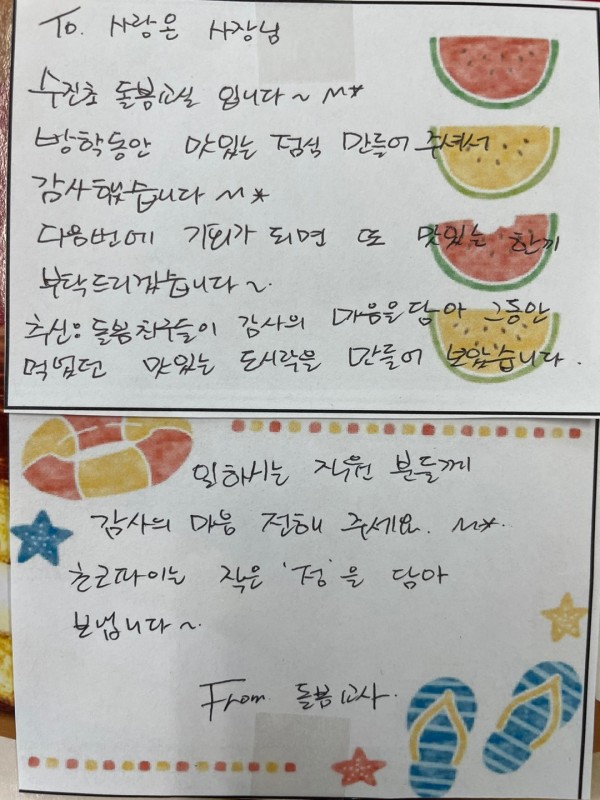 To. 사랑은 사장님
수진초 돌봄교실 입니다~ ^^*
방학동안 맛있는 점심 만들어 주셔서
감사했습니다 ^^*
다음번에 기회가 되면 또 맛있는 한끼
부탁드리겠습니다~.
추신: 돌봄친구들이 감사의 마음을 담아 그동안
먹었던 맛있는 도시락을 만들어 보았습니다.
일하시는 직원 분들께
감사의 마음 전해 주세요. ^^*.
초코파이는 작은 '정'을 담아
보냅니다~.
From. 돌봄교사.